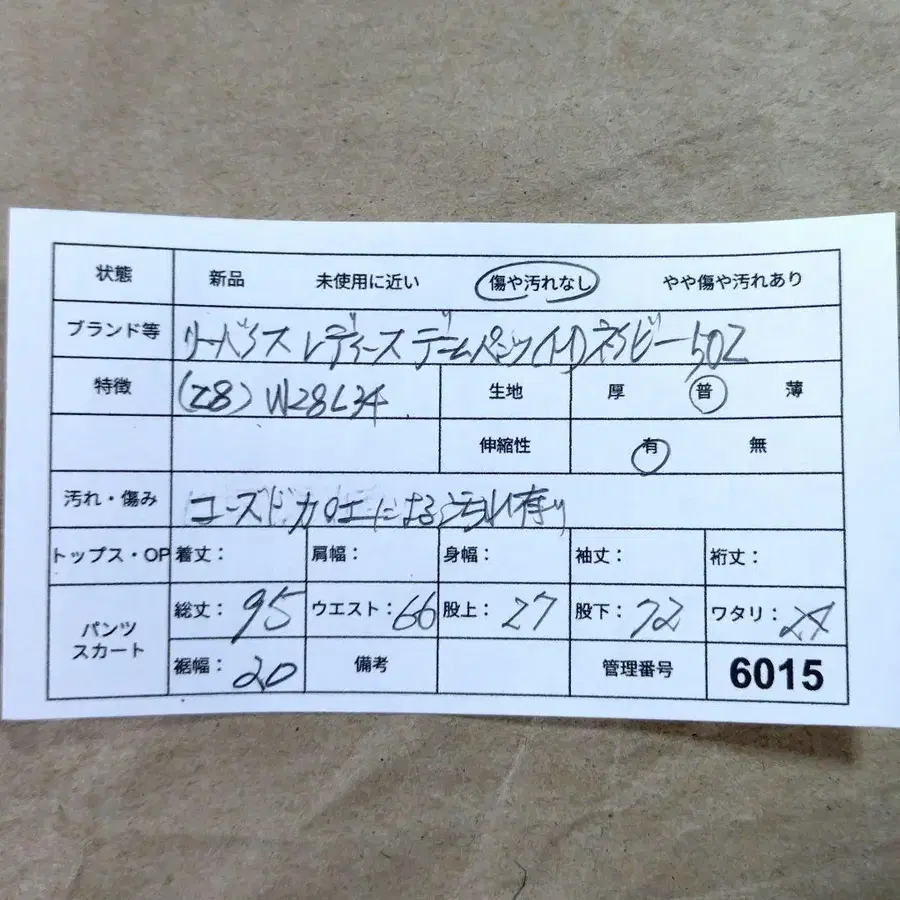 状態 新品 未使用に近い 傷や汚れなし やや傷や汚れあり
ブランド等 リーバイス レディース デニムパンツ(M)ネイビー 502
特徴 (28) W28L34 生地 厚 普 薄
伸縮性 有 無
汚れ・傷み ユーズド加工による汚れ有り
トップス・OP 着丈: 肩幅: 身幅: 袖丈: 裄丈:
パンツ スカート 総丈: 95 ウエスト: 66 股上: 27 股下: 72 ワタリ:
裾幅: 20 備考 管理番号 6015